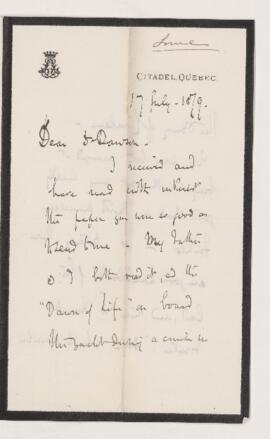 Lorne
CITADEL, QUEBEC
17 July - 1879.
Dear Dr Dawson -
I received and
have read with interest
the paper you were so good as
to send to me - My father
& I both read it, and the
"Dawn of Life" on board
the yacht during a cruise in